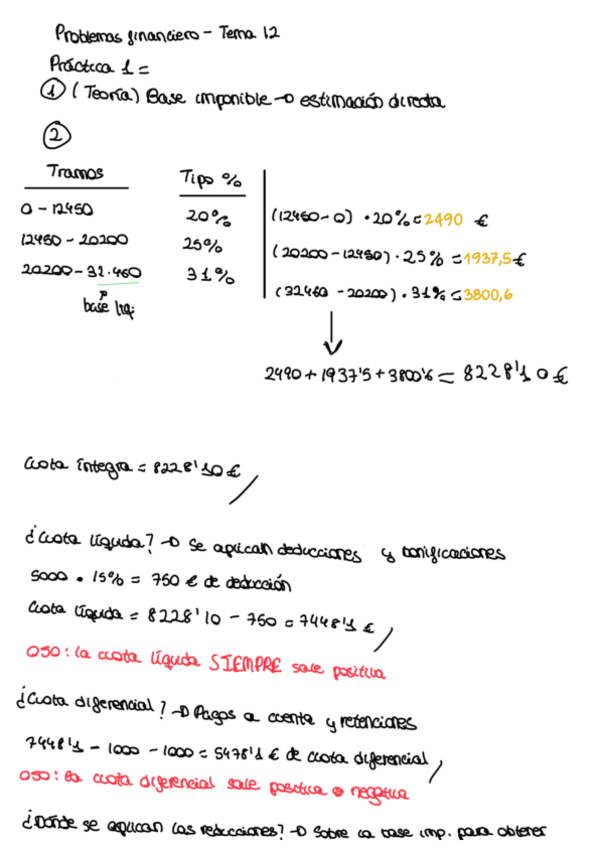 Problemas financiero - Tema 12
Práctica 1 =
① (Teoría) Base imponible → estimación directa
②
Tramos Tipo %
0 - 12450 20% (12450-0) · 20% = 2490 €
12450 - 20200 25% (20200-12450) · 25% = 1937,5€
20200 - 32.460 31% (32460 - 20200) · 31% = 3800,6
base liq.
2490 + 1937'5 + 3800'6 = 8228'10€
Cuota íntegra = 8228'10€
¿Cuota líquida? → Se aplican deducciones y bonificaciones
5000 · 15% = 750 € de deducción
Cuota líquida = 8228'10 - 750 = 7448'1 €
OJO: la cuota líquida SIEMPRE sale positiva
¿Cuota diferencial? → Pagos a cuenta y retenciones
7448'1 - 1000 - 1000 = 5478'1 € de cuota diferencial
OJO: la cuota diferencial sale positiva o negativa
¿Dónde se aplican las reducciones? → Sobre la base imp. para obtener